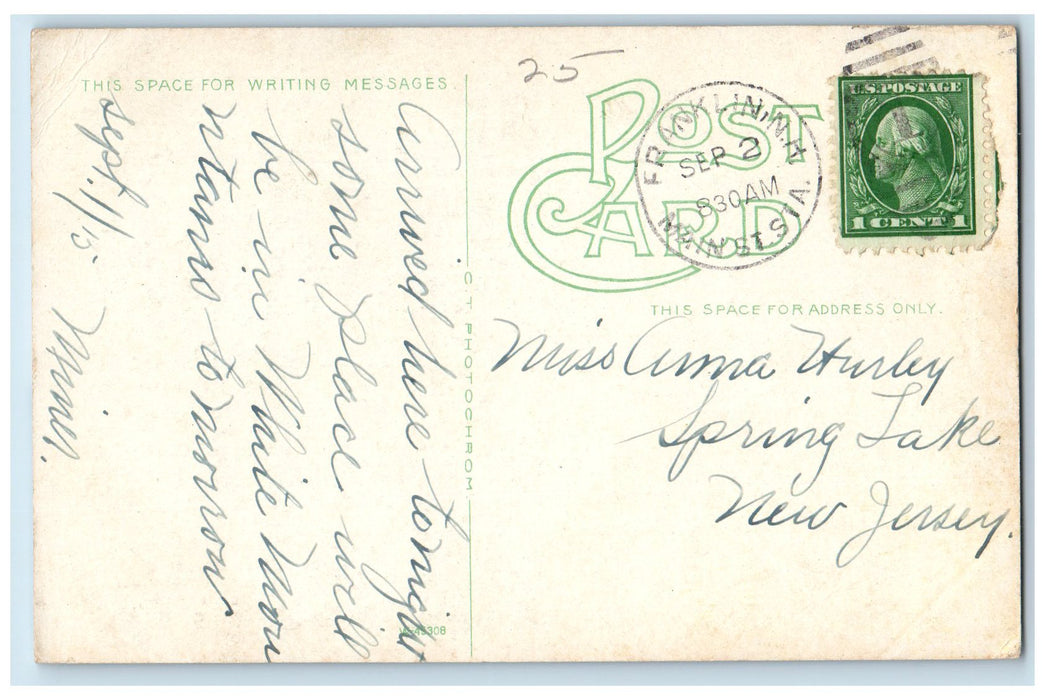 THIS SPACE FOR WRITING MESSAGES
Arrived here tonight
some place will
be in White Mou
ntains tomorrow
Sept. 1/15
Minnie.
C T PHOTOCHROM
25
POST CARD
FRANKLIN, N.H.
SEP 2
830 AM
1915
MAIN ST. STA.
U.S. POSTAGE
1 CENT 1
THIS SPACE FOR ADDRESS ONLY.
Miss Anna Hurley
Spring Lake
New Jersey.